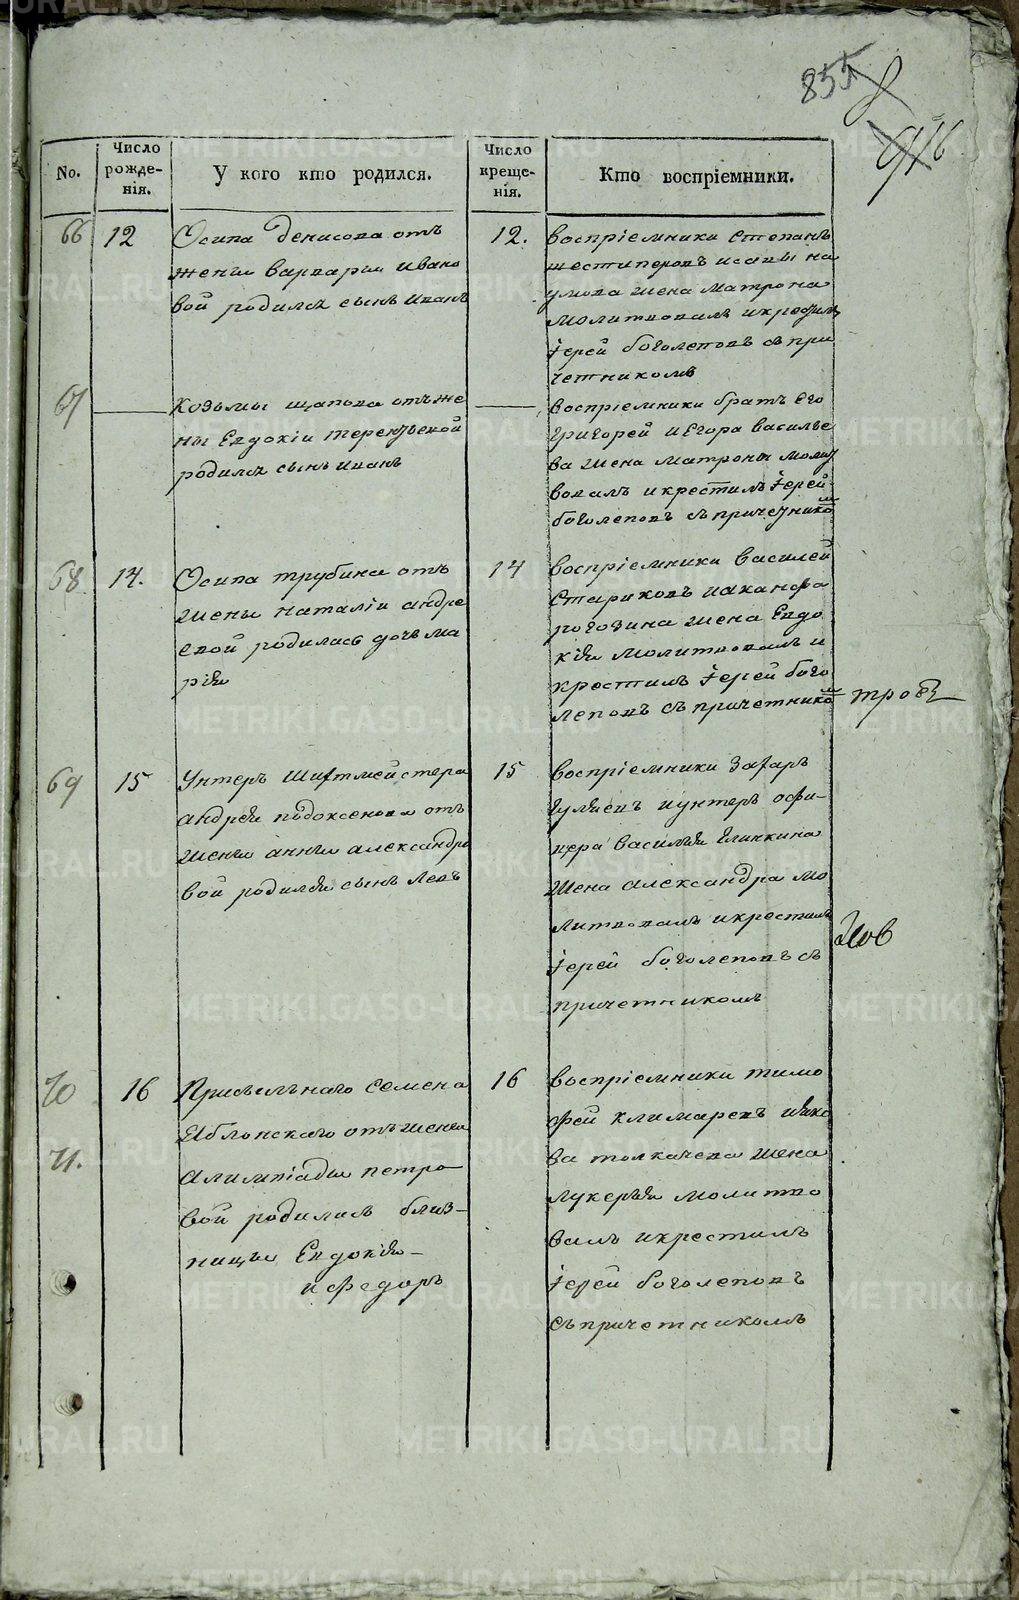 855
No.
Число рожде-нія.
У кого кто родился.
Число креще-нія.
Кто воспріемники.
66
12
Осипа Денисова отъ
жены варвары ивано
вой родился сынъ иванъ
12.
воспріемники степанъ
шестиперовъ исавы на
умова жена матрона
молитвовалъ икрестилъ
іерей боголеповъ съ при
четникомъ
67
Козьмы щапова отъ же
ны Евдокіи терентьевой
родился сынъ иванъ
воспріемники братъ его
григорей иЕгора василье
ва жена матрона молит
вовалъ икрестилъ іерей
боголеповъ съ причетником
68
14.
Осипа трубина отъ
жены наталіи андре
евой родилась дочь ма
рія
14
воспріемники василей
стариковъ
роговина жена Евдо
кія молитвовалъ и
крестилъ іерей бого
леповъ съ причетником
69
15
Унтеръ шихтмейстера
андрея отъ
жены анны александро
вой родился сынъ левъ
15
воспріемники захаръ
иунтеръ офи-
цера василія
жена александра мо
литвовалъ икрестилъ
іерей боголеповъ съ
причетникомъ
70
71.
16
семена
Яблонскаго отъ жены
алимпіады петро
вой родились близ-
ницы Евдокія-
и федоръ
16
воспріемники тимо
фей
ва толкачева жена
лукерія молитво
валъ икрестилъ
іерей боголеповъ
съ причетникомъ
METRIKI.GASO-URAL.RU